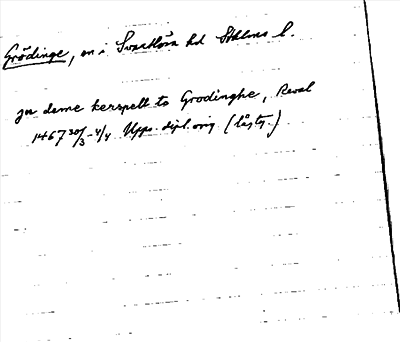 Grödinge, sn i Svartlösa hd Sthlms l.
zu deme kerspell to Grodinghe, Reval
1467 30/3-4/4 Upps. dipl. orig (lågty.)